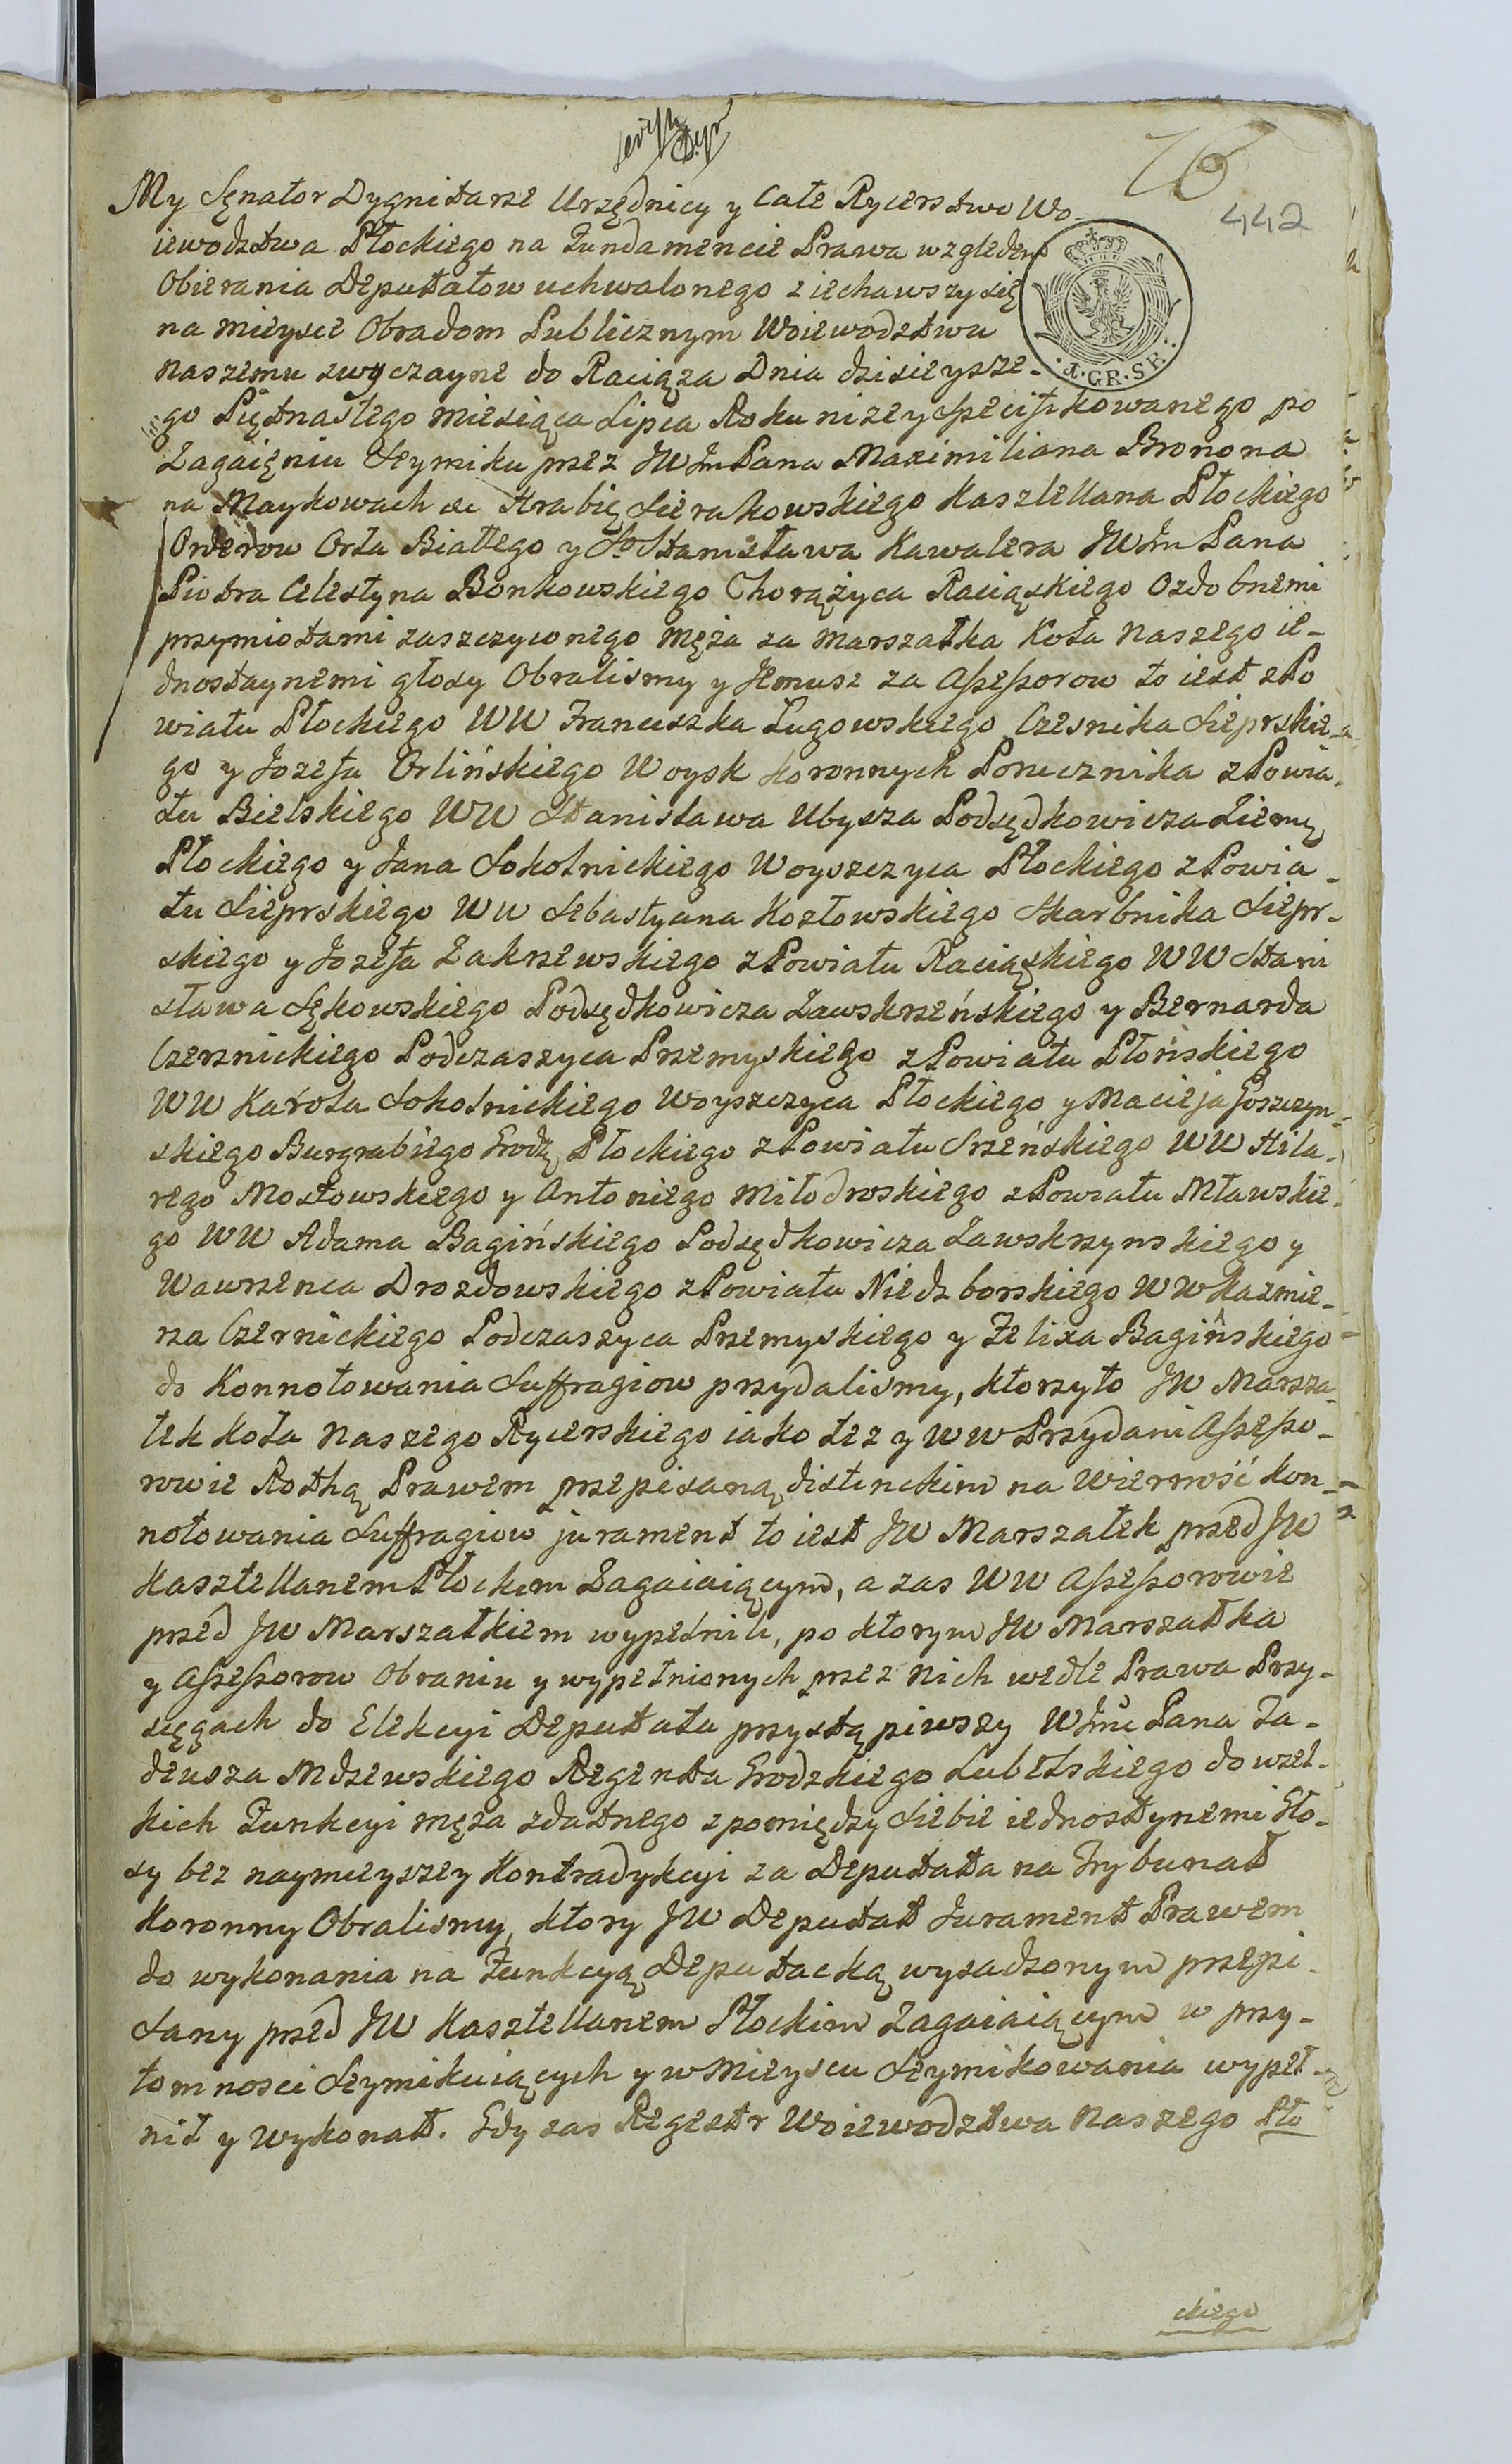 76
442
My Sęnator Dygnitarze Urzędnicy y Całe Rycerstwo Wo-
iewodztwa Płockiego na Fundamencie Prawa względem
Obierania Deputatow uchwalonego ziechawszy się
na mieysce Obradom Publicznym Woiewodztwu
naszemu zwyczayne do Raciąża Dnia dzisieysze-
go Piętnastego miesiąca Lipca Roku niżey specifikowanego po
Zagaięniu Seymiku przez JW Jm Pana Maximiliana Bronona
na Maykowach &c Hrabię Sierakowskiego Kasztellana Płockiego
Orderow Orła Białego y So Stanisława Kawalera JW Jm Pana
Piotra Celestyna Bonkowskiego Chorążyca Raciąskiego Ozdobnemi
przymiotami zaszczyconego męża za Marszałka Koła naszego ie-
dnostaynemi głosy Obralismy y Jemusz za Assessorow to iest z Po
wiatu Płockiego WW Franciszka Ługowskiego Czesnika Sieprskie-
go y Jozefa Orlińskiego Woysk koronnych Porucznika z Powia-
tu Bielskiego WW Stanisława Ubysza Podsędkowicza Ziemę
Płockiego y Jana Sokolnickiego Woyszczyca Płockiego z Powia-
tu Sieprskiego WW Sebastyana Kozłowskiego Skarbnika Siepr-
skiego y Jozefa Zakrzewskiego z Powiatu Raciąskiego WW Stani
sława Sękowskiego Podsędkowicza Zawskrzeńskiego y Bernarda
Czernickiego Podczaszyca Przemyskiego z Powiatu Płońskiego
WW Karola Sokolnickiego Woyszczyca Płockiego y Macieja Goszczyn-
skiego Burgrabiego Grodz Płockiego z Powiatu Srzeńskiego WW Hila-
rego Mostowskiego y Antoniego Miłodroskiego z Powiatu Mławskie-
go WW Adama Bagińskiego Podsędkowicza Zawskrzynskiego y
Wawrzenca Drozdowskiego z Powiatu Niedzborskiego WW Kazmie-
rza Czernickiego Podczaszyca Przemyskiego y Felixa Bagińskiego
do Konnotowania Suffragiow przydalismy, ktorzyto JW Marsza-
łek Koła naszego Rycerskiego iako też y WW Przydani Assesso-
rowie Rothą Prawem przepisaną distinckim na Wierność kon-
notowania Suffragiow jurament to iest JW Marszałek przed JW
Kasztellanem Płockim Zagaiaiącym, a zas WW Assessorowie
przed JW Marszałkiem wypełnili, po ktorym JW Marszałka
y Assessorow Obraniu y wypełnionych przez nich wedle Prawa Przy-
sięgach do Elekcyi Deputata przystąpiwszy WJmc Pana Ta-
deusza Mdzewskiego Regenta Grodzkiego Lubelskiego do wszel-
kich Funkcyi męża zdatnego z pomiędzy Siebie iednostynemi Gło-
sy bez naymieyszey Kontradykcyi za Deputata na Trybunał
Koronny Obralismy, ktory JW Deputat Jurament Prawem
do wykonania na Funkcyą Deputacką wysadzonym przepi-
sany przed JW Kasztellanem Płockim Zagaiaiącym w przy-
tomnosci Seymikuiących y w Mieyscu Seymikowania wypeł-
nił y wykonał. Gdy zas Regestr Woiewodztwa naszego Pło
ckiego